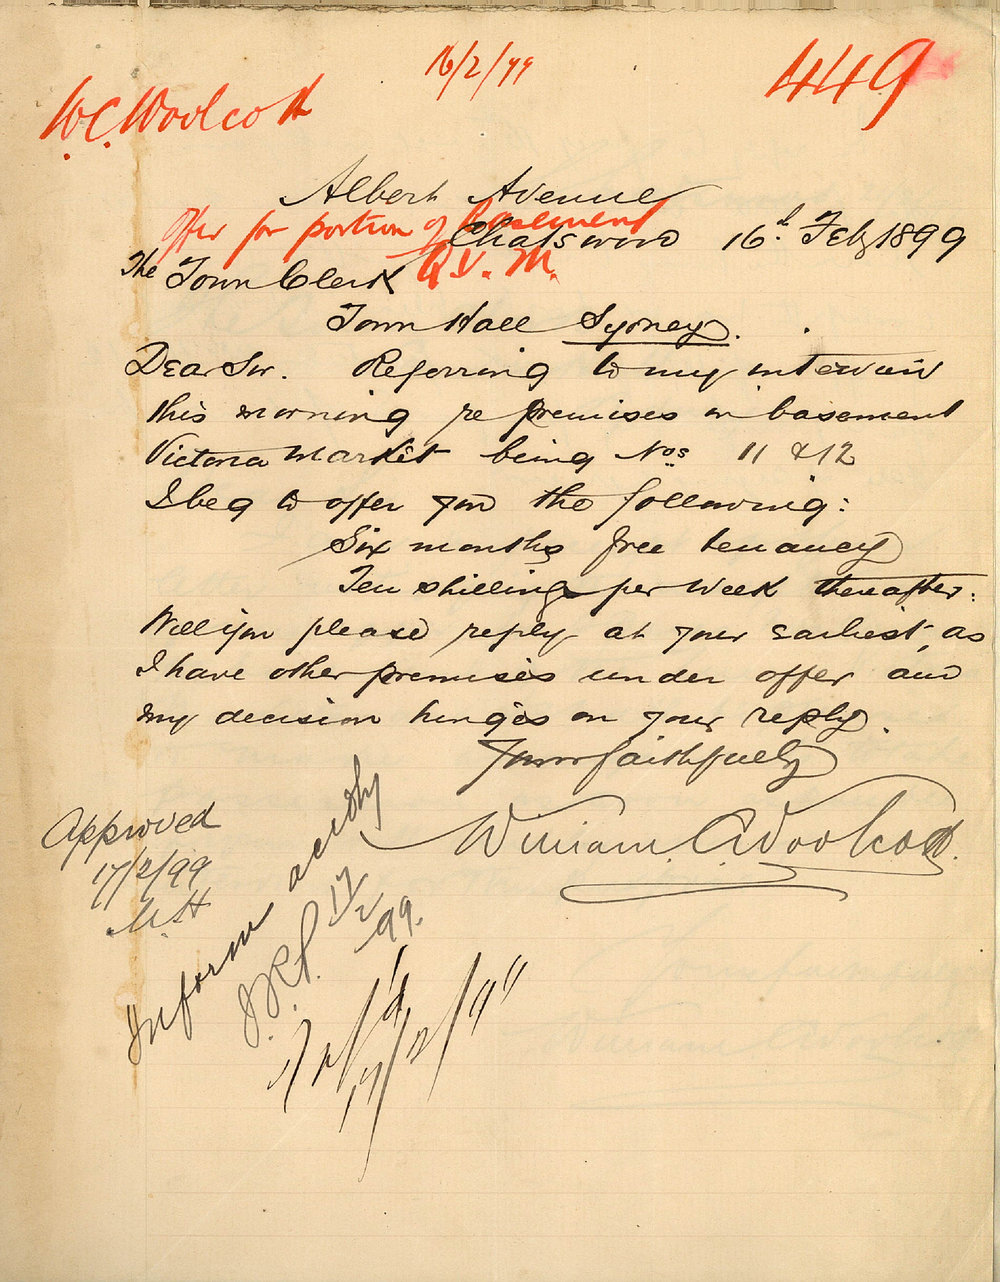 16/2/99
449
W.C. Woolcott
Albert Avenue
Offer for portion of basement
Chatswood 16th. Feby 1899
Q.V.M.
The Town Clerk
Town Hall Sydney.
Dear Sir. Referring to my interview
this morning re premises in basement
Victoria Market being Nos 11 & 12
I beg to offer you the following:
Six months free tenancy
Ten shillings per week thereafter:
Will you please reply at your earliest as
I have other premises under offer and
my decision hinges on your reply.
Yours faithfully
William. C. Woolcott.
Approved
17/2/99
Inform acdly
17/2/99.
17/2/99